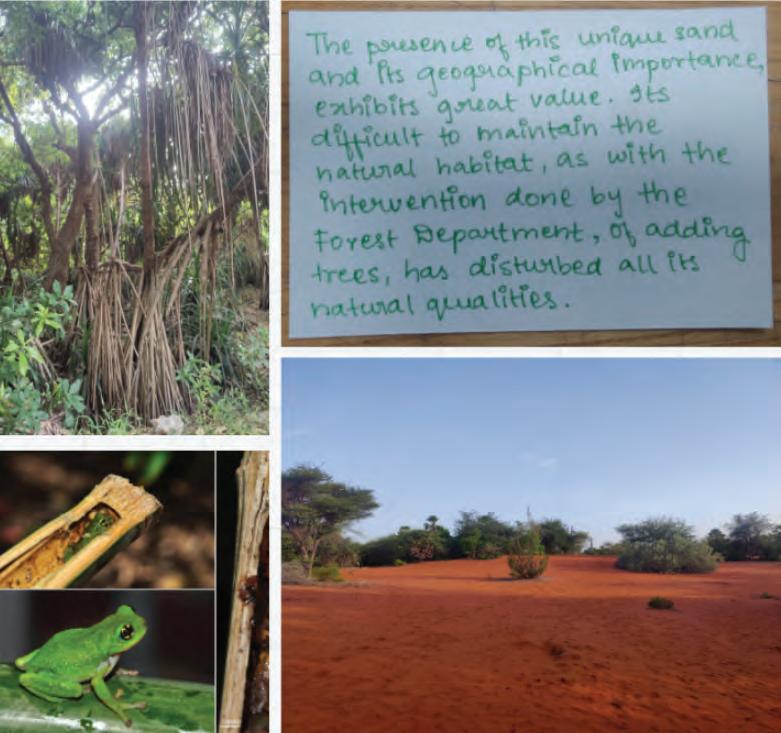 The presence of this unique sand
and its geographical importance,
exhibits great value. Its
difficult to maintain the
natural habitat, as with the
intervention done by the
Forest Department, of adding
trees, has disturbed all its
natural qualities.